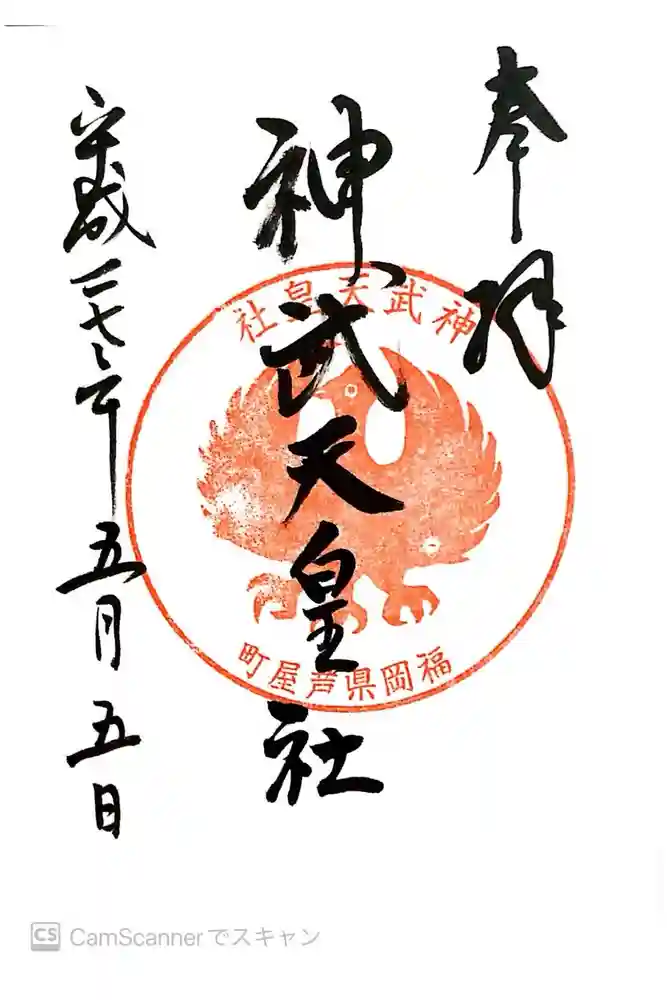 奉拝
神武天皇社
神武天皇社
福岡県芦屋町
平成二七年
五月五日
CS CamScannerでスキャン